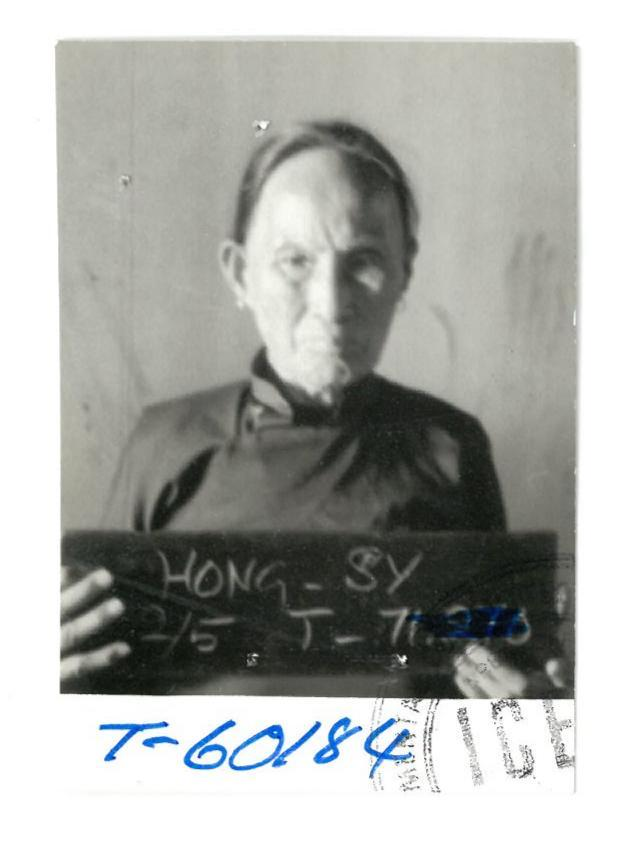 HONG - SY
2/5 T - 71.
T-60184
ICE